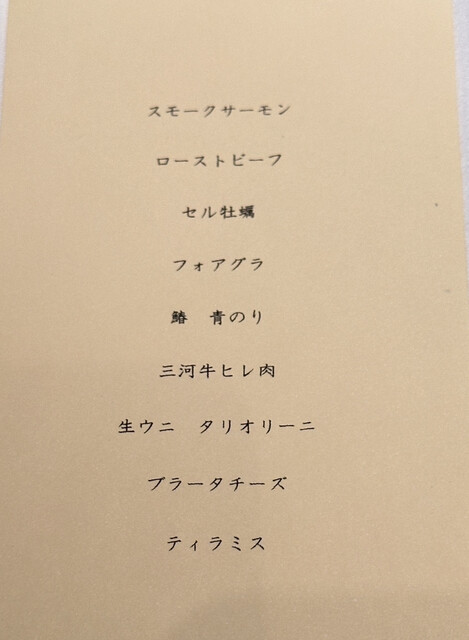 スモークサーモン
ローストビーフ
セル牡蠣
フォアグラ
鰆　青のり
三河牛ヒレ肉
生ウニ　タリオリーニ
ブラータチーズ
ティラミス